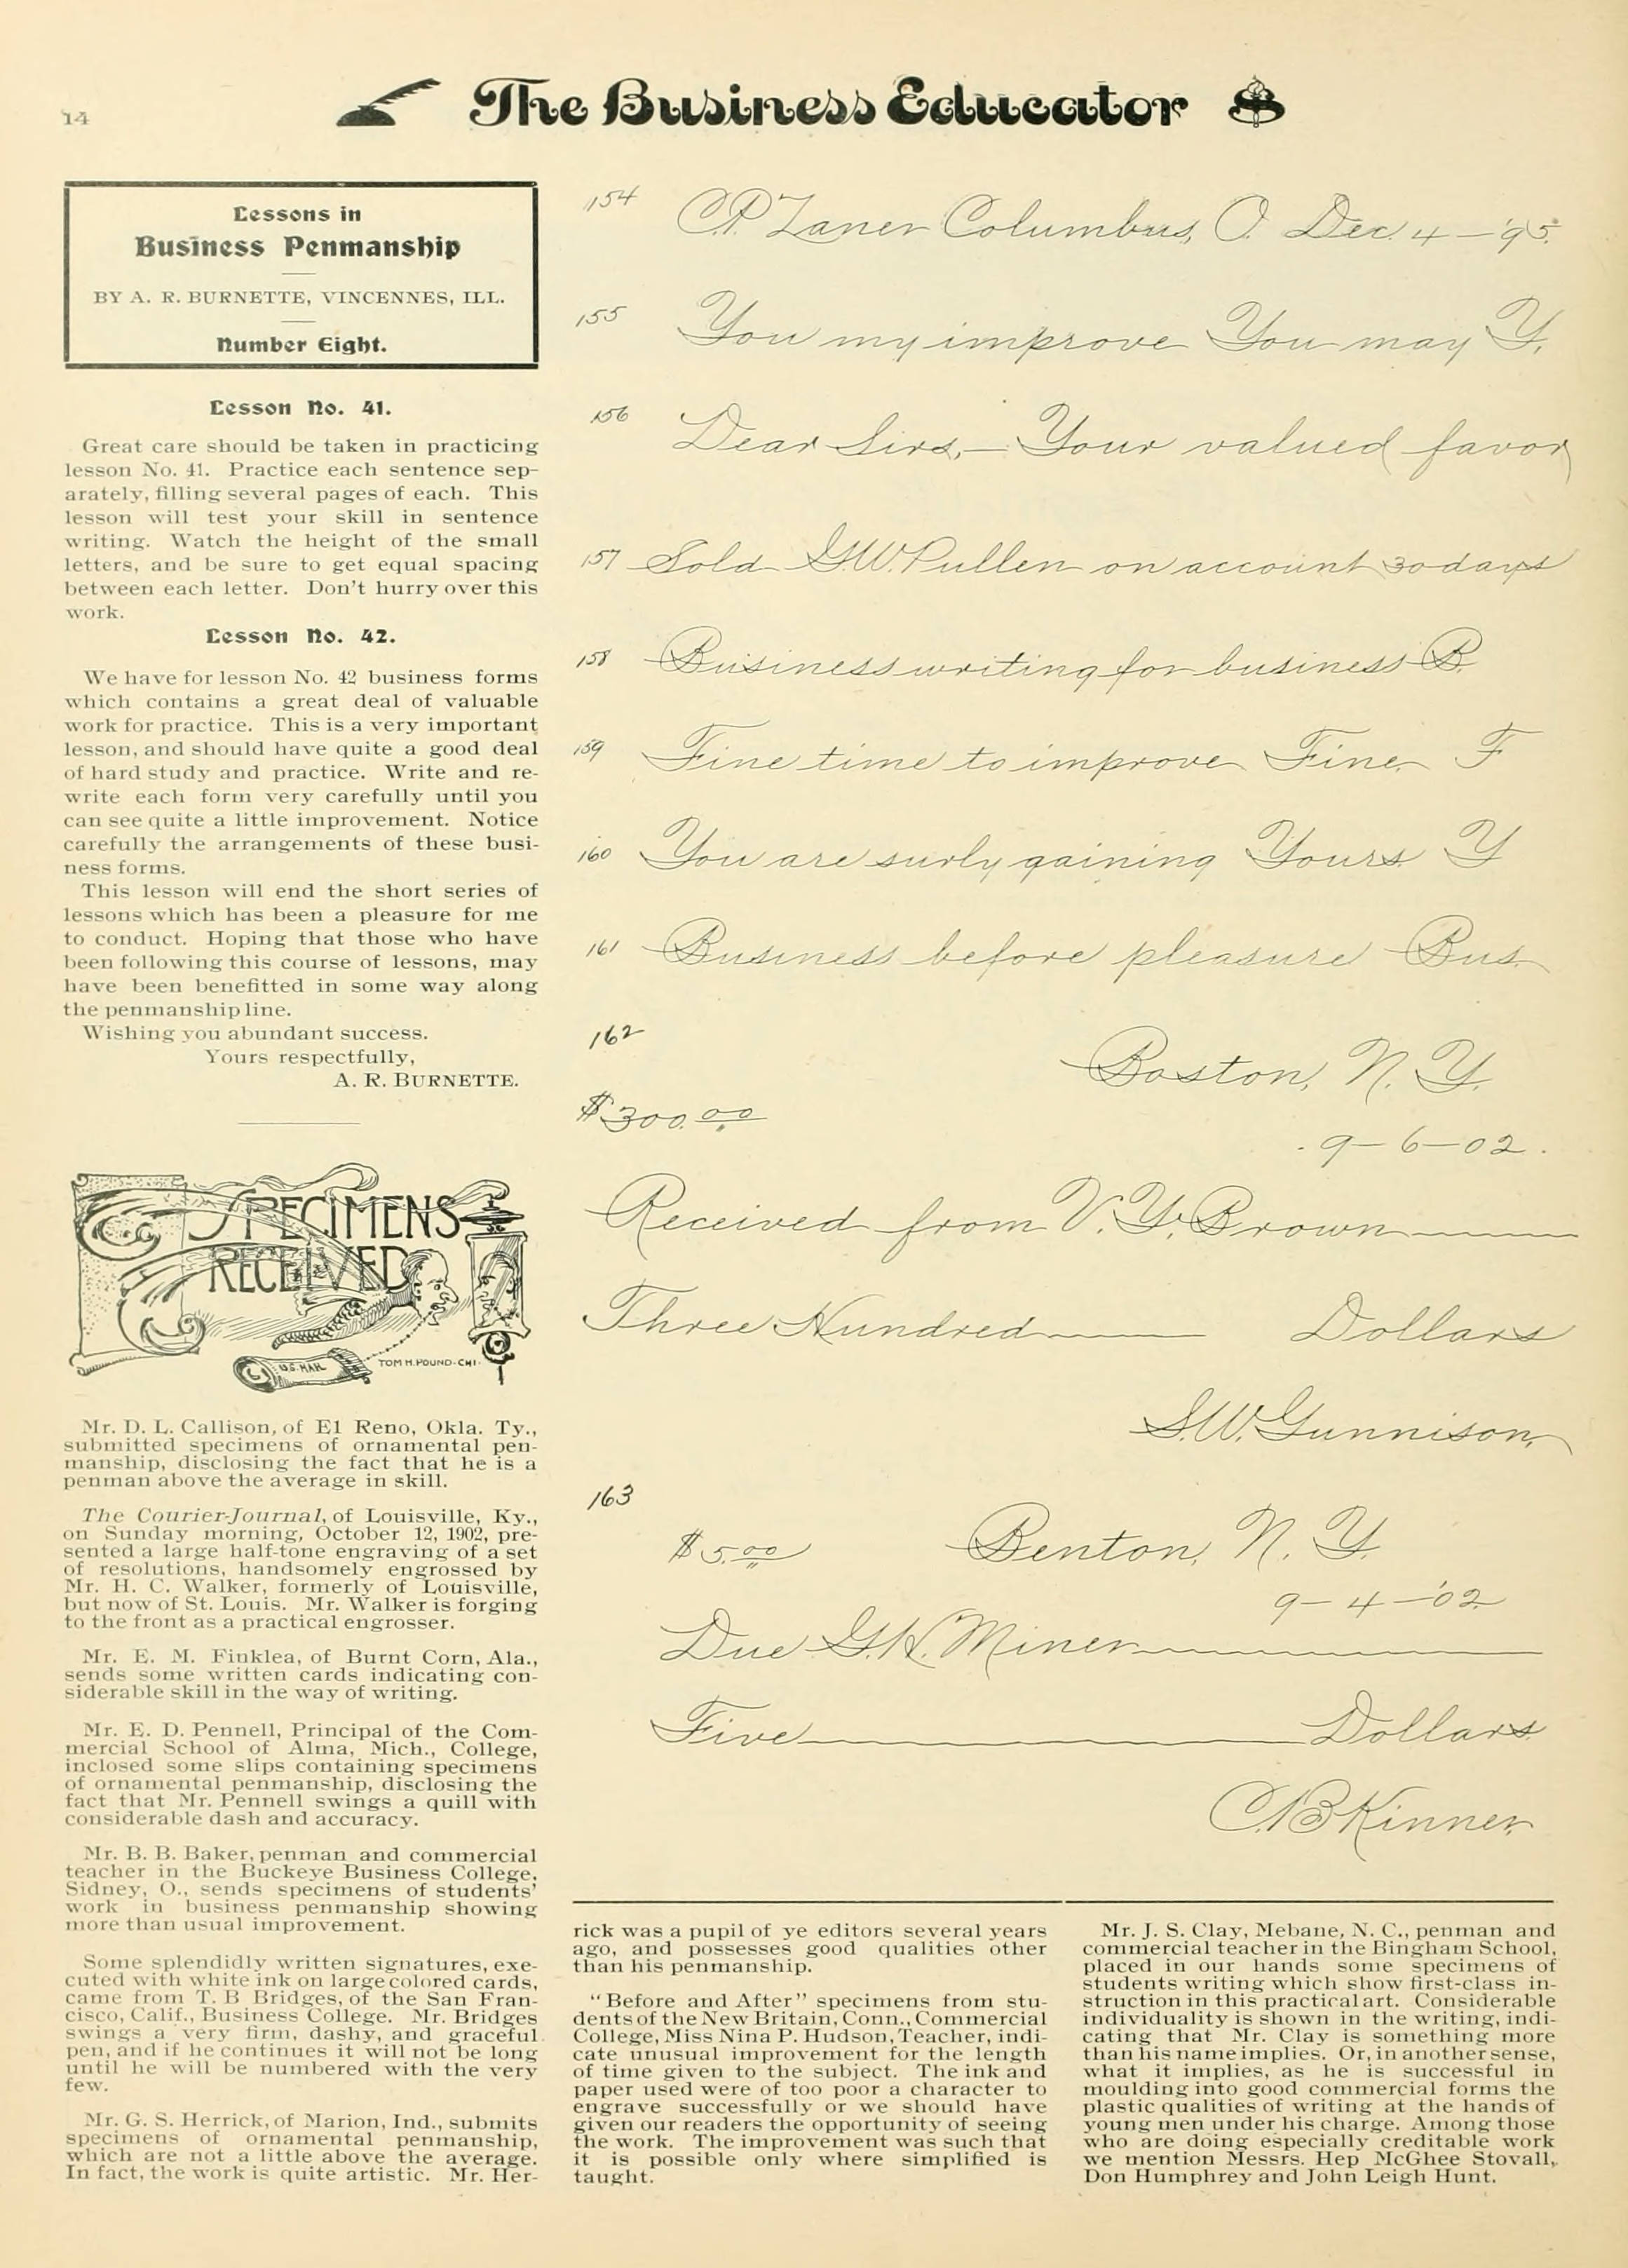 14
The Business Educator
Lessons in
Business Penmanship
BY A. R. BURNETTE, VINCENNES, ILL.
Number Eight.
Lesson No. 41.
Great care should be taken in practicing
lesson No. 41. Practice each sentence sep-
arately, filling several pages of each. This
lesson will test your skill in sentence
writing. Watch the height of the small
letters, and be sure to get equal spacing
between each letter. Don't hurry over this
work.
Lesson No. 42.
We have for lesson No. 42 business forms
which contains a great deal of valuable
work for practice. This is a very important
lesson, and should have quite a good deal
of hard study and practice. Write and re-
write each form very carefully until you
can see quite a little improvement. Notice
carefully the arrangements of these busi-
ness forms.
This lesson will end the short series of
lessons which has been a pleasure for me
to conduct. Hoping that those who have
been following this course of lessons, may
have been benefitted in some way along
the penmanship line.
Wishing you abundant success.
Yours respectfully,
A. R. BURNETTE.
SPECIMENS
RECEIVED
U.S. MAIL
TOM H. POUND-CHI-
Mr. D. L. Callison, of El Reno, Okla. Ty.,
submitted specimens of ornamental pen-
manship, disclosing the fact that he is a
penman above the average in skill.
The Courier-Journal, of Louisville, Ky.,
on Sunday morning, October 12, 1902, pre-
sented a large half-tone engraving of a set
of resolutions, handsomely engrossed by
Mr. H. C. Walker, formerly of Louisville,
but now of St. Louis. Mr. Walker is forging
to the front as a practical engrosser.
Mr. E. M. Finklea, of Burnt Corn, Ala.,
sends some written cards indicating con-
siderable skill in the way of writing.
Mr. E. D. Pennell, Principal of the Com-
mercial School of Alma, Mich., College,
inclosed some slips containing specimens
of ornamental penmanship, disclosing the
fact that Mr. Pennell swings a quill with
considerable dash and accuracy.
Mr. B. B. Baker, penman and commercial
teacher in the Buckeye Business College,
Sidney, O., sends specimens of students'
work in business penmanship showing
more than usual improvement.
Some splendidly written signatures, exe-
cuted with white ink on large colored cards,
came from T. B Bridges, of the San Fran-
cisco, Calif., Business College. Mr. Bridges
swings a very firm, dashy, and graceful
pen, and if he continues it will not be long
until he will be numbered with the very
few.
Mr. G. S. Herrick, of Marion, Ind., submits
specimens of ornamental penmanship,
which are not a little above the average.
In fact, the work is quite artistic. Mr. Her-
154 C.P. Zaner Columbus, O. Dec. 4 - '95.
155 You my improve You may Y.
156 Dear Sirs,— Your valued favor
157 Sold G.W. Pullen on account 30 days
158 Business writing for business B.
159 Fine time to improve Fine F
160 You are surly gaining Yours Y
161 Business before pleasure Bus.
162
Boston, N. Y.
$300.00
9-6-02.
Received from V. Y. Brown
Three Hundred Dollars
S.W. Gunnison,
163
$5.00 Benton, N. Y.
9-4-'02
Due G.H. Miner
Five Dollars
C.B. Kinner,
rick was a pupil of ye editors several years
ago, and possesses good qualities other
than his penmanship.
"Before and After" specimens from stu-
dents of the New Britain, Conn., Commercial
College, Miss Nina P. Hudson, Teacher, indi-
cate unusual improvement for the length
of time given to the subject. The ink and
paper used were of too poor a character to
engrave successfully or we should have
given our readers the opportunity of seeing
the work. The improvement was such that
it is possible only where simplified is
taught.
Mr. J. S. Clay, Mebane, N. C., penman and
commercial teacher in the Bingham School,
placed in our hands some specimens of
students writing which show first-class in-
struction in this practical art. Considerable
individuality is shown in the writing, indi-
cating that Mr. Clay is something more
than his name implies. Or, in another sense,
what it implies, as he is successful in
moulding into good commercial forms the
plastic qualities of writing at the hands of
young men under his charge. Among those
who are doing especially creditable work
we mention Messrs. Hep McGhee Stovall,
Don Humphrey and John Leigh Hunt.